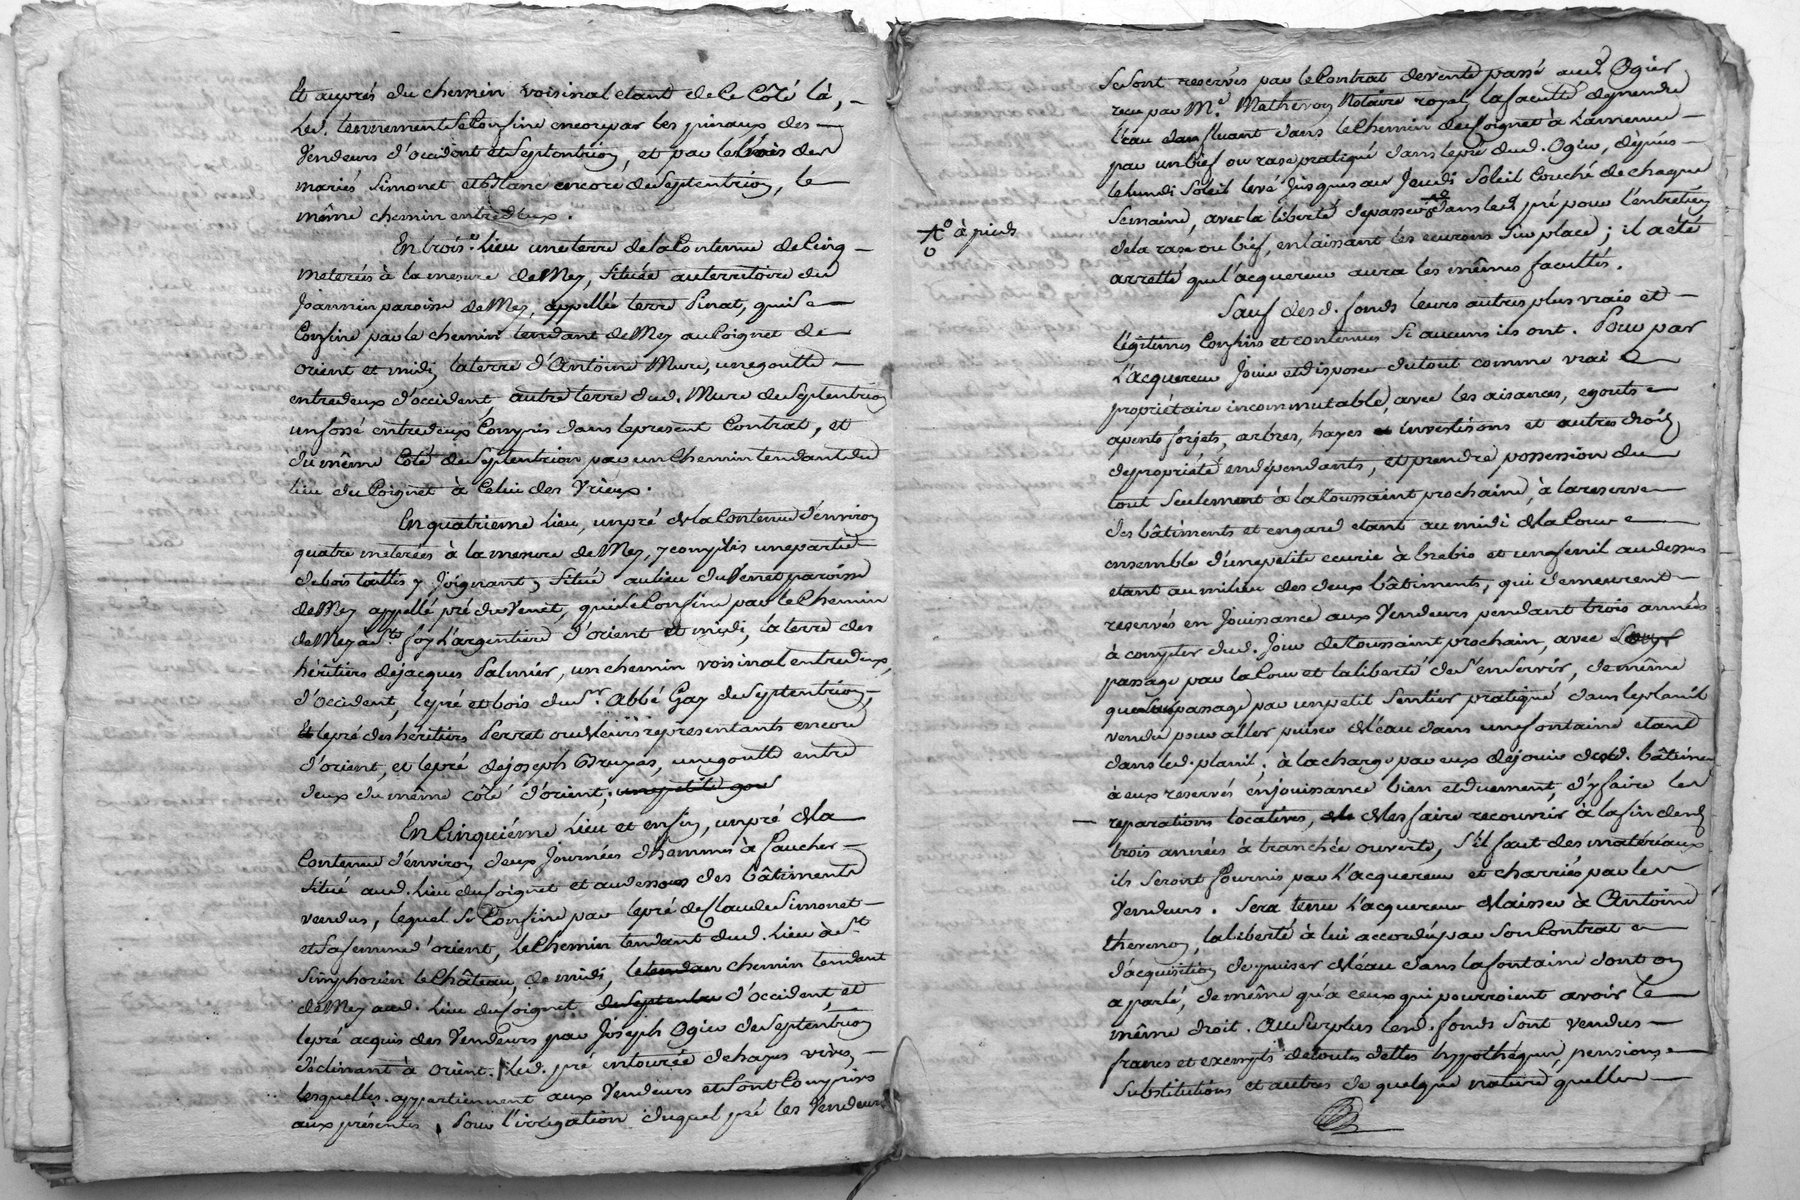 Et auprés du chemin voisinal etant de Ce Côté là,
Led. tennement se Confine encore par les pinaux des
Vendeurs d'occident et Septentrion, et par le bois des
mariés Simonet et Blanc encore de Septentrion, le
même chemin entredeux.
En trois.e Lieu une terre de la Contenue de Cinq
meterées à la mesure de Mey, Située au territoire du
Joannin paroisse de Mey, appellée terre Pinat, qui se
Confine par le chemin tendant de Mey au Poignet de
orient et midi, la terre d'Antoine Mure, une goutte
entredeux d'occident, autre terre dud. Mure de Septentrion
un fossé entredeux Compris dans le present Contrat, et
du même Côté de Septentrion par un Chemin tendant du
lieu du Poignet à Celui des Vrieux.
En quatrieme Lieu, un pré de la Contenue d'environ
quatre meterées à la mesure de Mey, y compris une partie
de bois taillis y Joignant, Situé au lieu du Venet paroisse
de Mey appellé pré du Venet, qui se Confine par le Chemin
de Mey à S.te foy L'argentiere d'orient et midi, la terre des
héritiers de jacques Palmier, un chemin voisinal entredeux,
d'occident, le pré et bois du S.r Abbé Gay de Septentrion,
et le pré des héritiers Perret ou de leurs representants encore
d'orient, et le pré de joseph Bruyas, une goutte entre
deux du même côté d'orient, une petite gou
En Cinquiéme Lieu et enfin, un pré de la
Contenue d'environ deux Journées d'hommes à faucher
Situé aud. Lieu du Poignet et au dessous des bâtiments
vendus, lequel Se Confine par le pré de Claude Simonet
et Sa femme d'orient, le Chemin tendant dud. Lieu à S.t
Simphorien le Château, de midi, le tendan chemin tendant
de Mey aud. Lieu du Poignet de Septentrio d'occident, et
le pré acquis des Vendeurs par Joseph Ogier de Septentrion
déclinant à orient. Led. pré entourée de hayes vives,
lesquelles appartiennent aux Vendeurs et Sont Comprises
aux présentes. Pour l'irrigation duquel pré les Vendeurs
Se Sont reservés par le Contrat de vente passé aud. Ogier
reçu par M.e Mathevon Notaire royal, la faculté de prendre
l'eau dans fluant dans le Chemin du Poignet à Lamenue
par un bief ou rase pratiqué dans le pré dud. Ogier, depuis
le lundi Soleil levé Jusques au Jeudi Soleil Couché de chaque
Semaine, avec la liberté de passer dans led. pré pour l'entretien
de la rase ou bief, en laissant les ecurons Sur place; il a été
arretté que l'acquereur aura les mêmes facultés.
à pieds
Sauf desd. fonds leurs autres plus vrais et
légitimes Confins et contenues Si aucuns ils ont. Pour par
L'acquereur Jouir et disposer du tout comme vrai
propriétaire incommutable, avec les aisances, egouts
apents forjets, arbres, hayes et investisons et autres droits
de propriété en dépendants, et prendre possession du
tout Seulement à la toussaint prochaine, à la reserve
des bâtiments et engard etant au midi de la Cour
ensemble d'une petite ecurie à brebis et un fenil au dessus
etant au milieu des deux bâtiments, qui demeurent
reservés en Jouissance aux Vendeurs pendant trois années
à compter dud. Jour de toussaint prochain, avec
passage par la Cour et la liberté de S'en Servir, de même
que du passage par un petit Sentier pratiqué dans le planil
vendu pour aller puiser de l'eau dans une fontaine etant
dans led. planil; à la charge par eux de jouir desd. bâtimen
à eux reservés en jouissance bien et duement, d'y faire les
reparations locatives, de les faire recouvrir à la fin desd.
trois années à tranchée ouverte, S'il faut des matéreaux
ils Seront fournis par L'acquereur et charriés par les
Vendeurs. Sera tenu L'acquereur de laisser à Antoine
thevenon, la liberté à lui accordée par Son Contrat
d'acquisition de puiser de l'eau dans la fontaine dont on
a parlé, de même qu'a ceux qui pourroient avoir le
même droit. Au Surplus lesd. fonds Sont vendus
francs et exempts de toutes dettes hypothéques, pensions
Substitutions et autres de quelque nature quelles